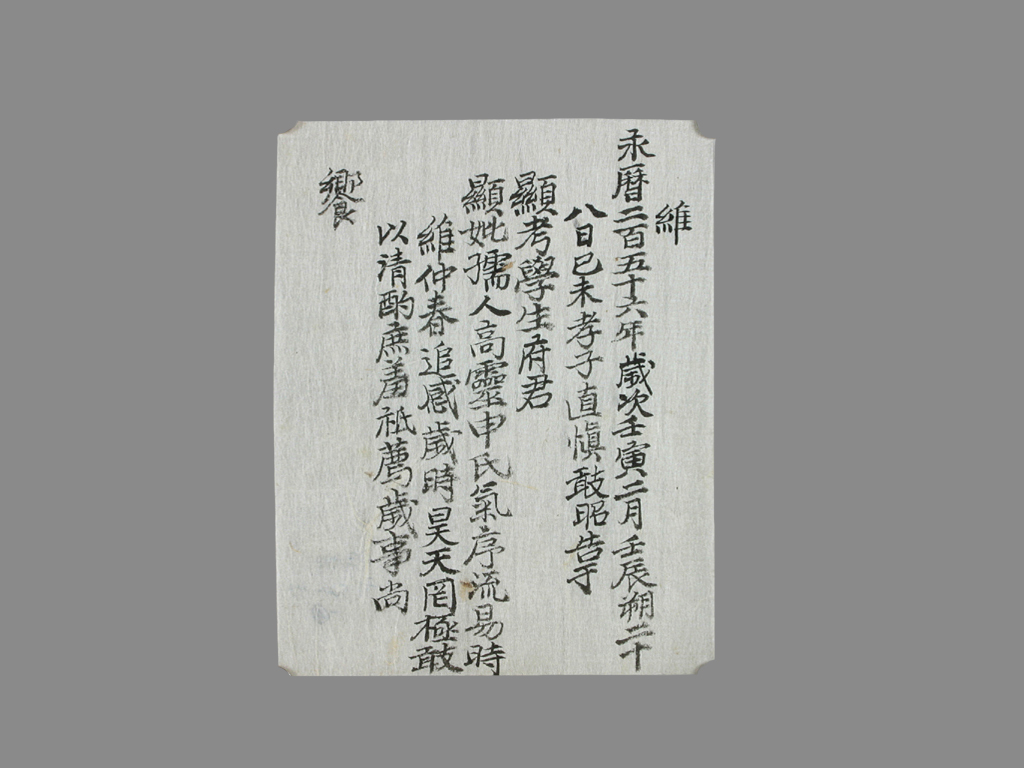 維
永曆二百五十六年歲次壬寅二月壬辰朔二十
八日己未孝子直愼敢昭告于
顯考學生府君
顯妣孺人高靈申氏氣序流易時
維仲春追感歲時昊天罔極敢
以清酌庶羞祗薦歲事尙
饗